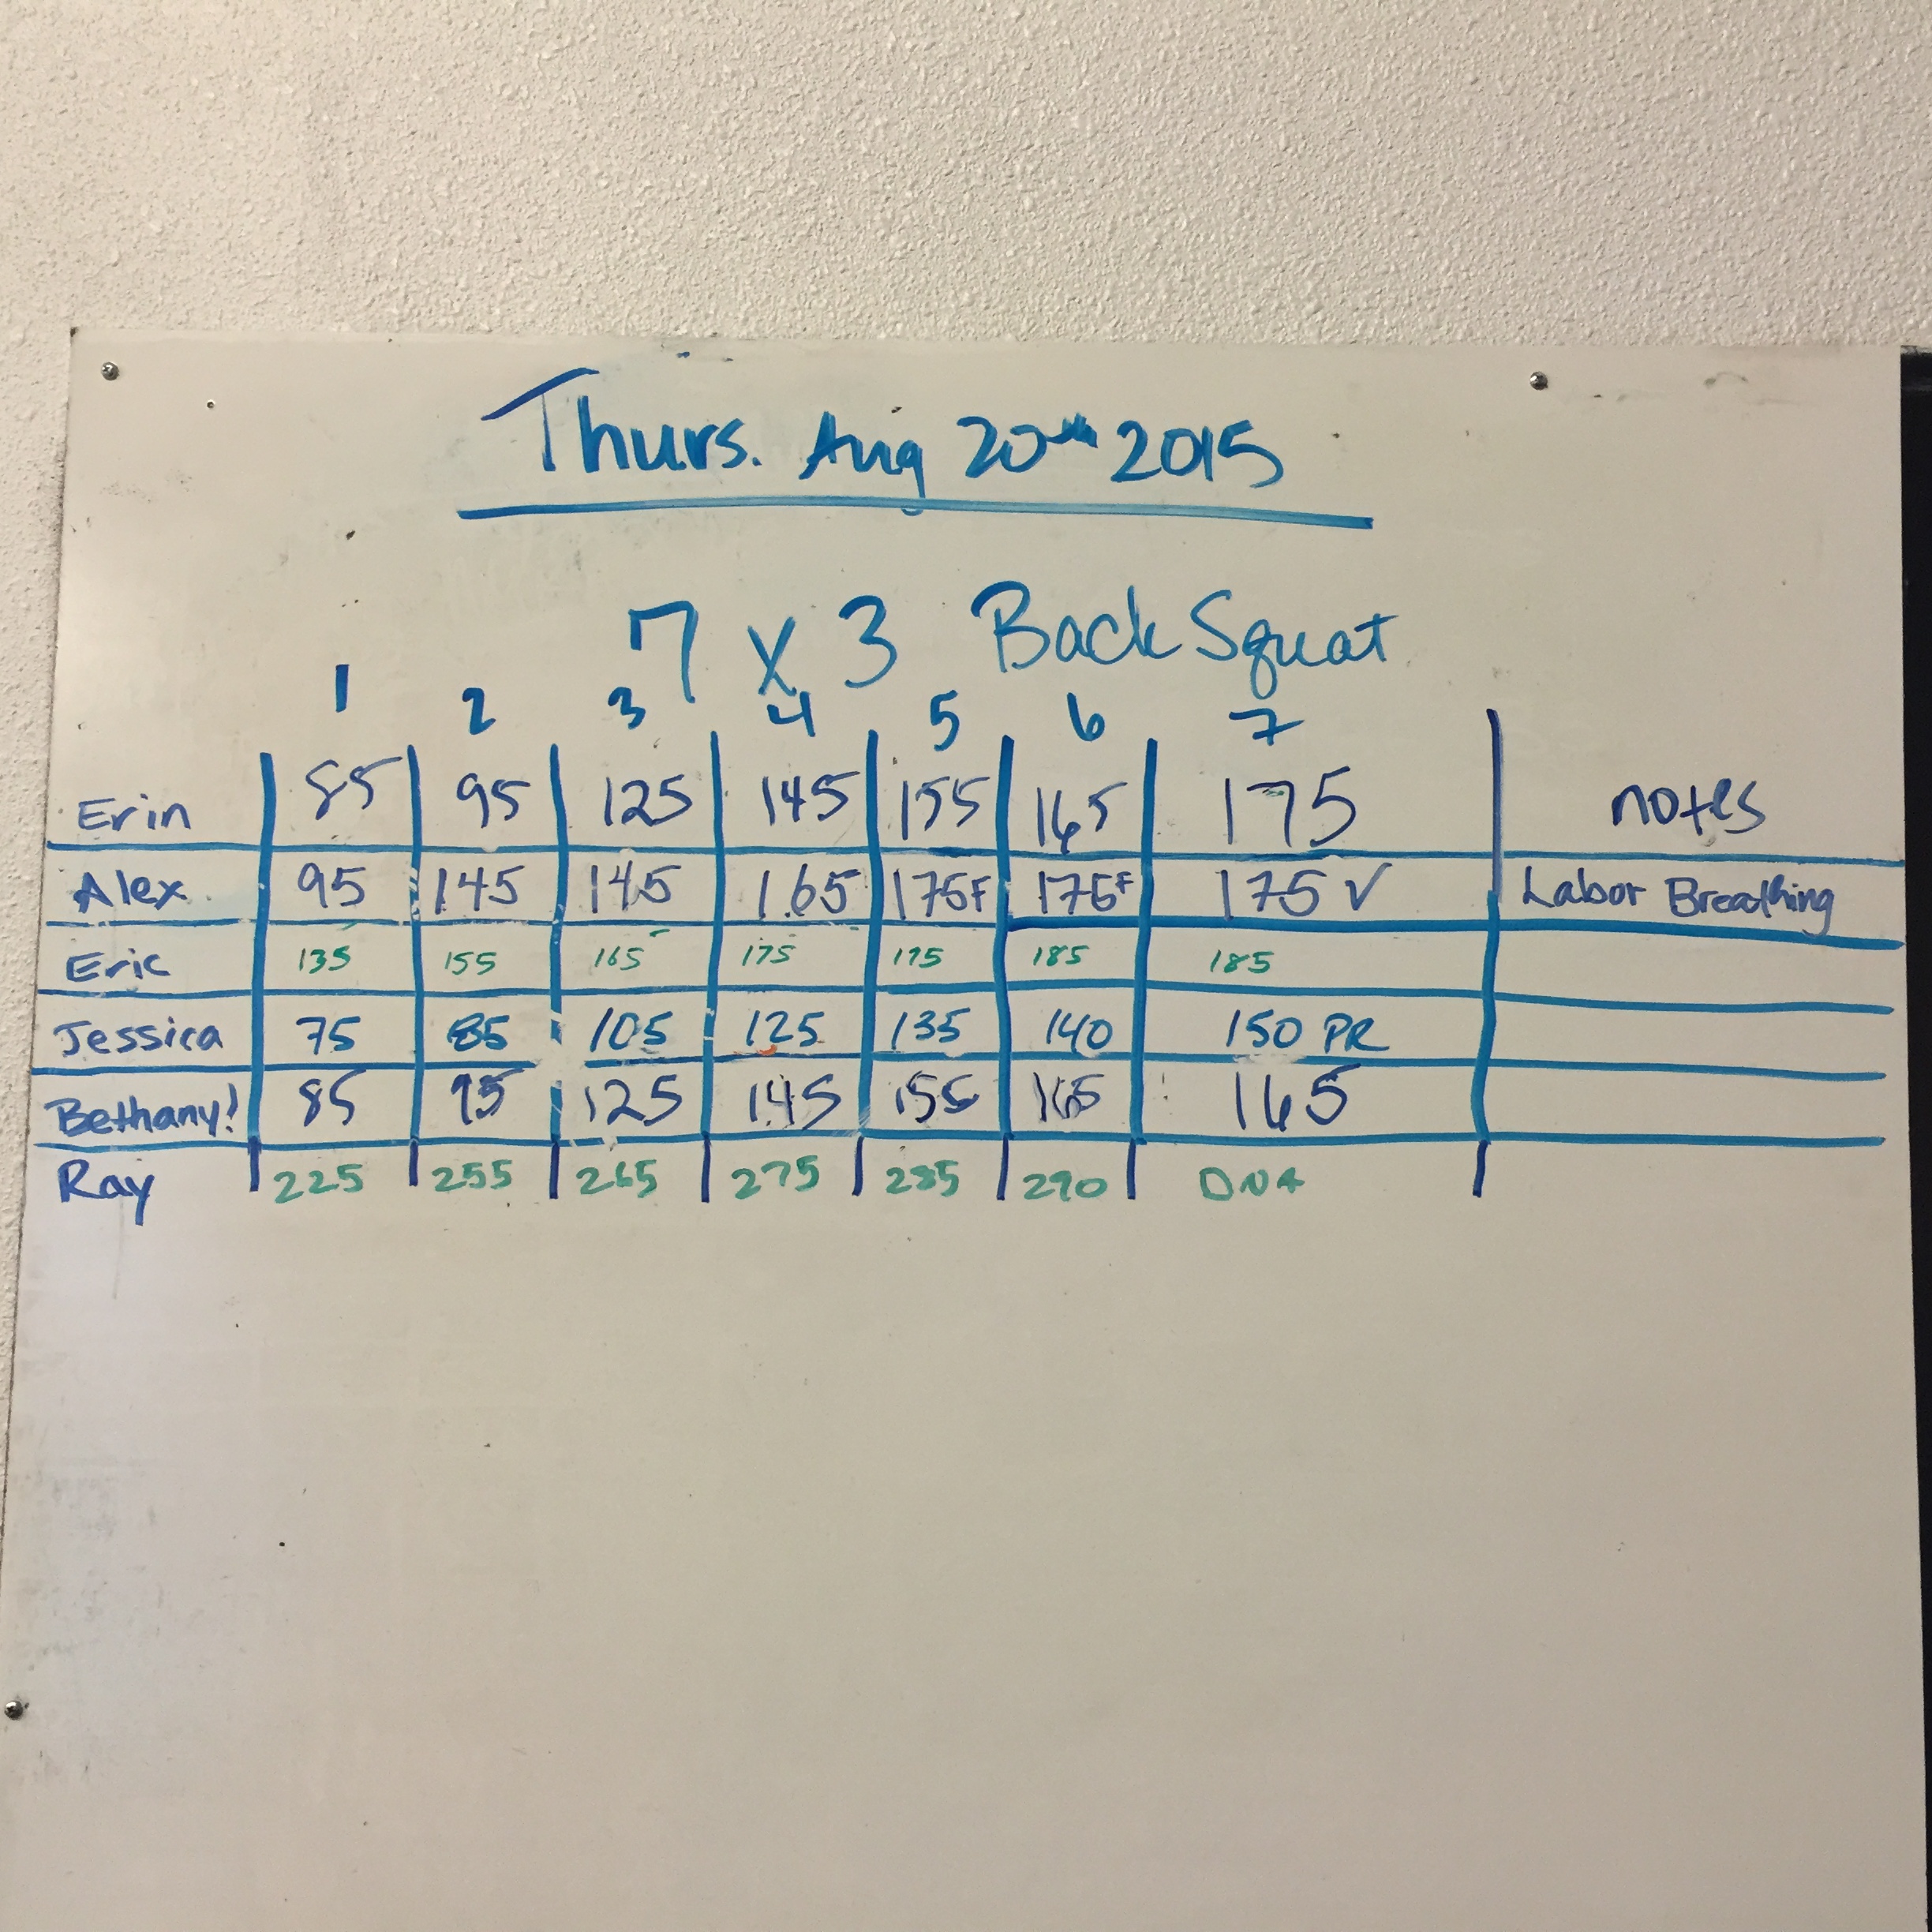 Thurs. Aug 20th 2015
7 x 3 Back Squat
1 2 3 4 5 6 7
Erin 85 95 125 145 155 165 175 notes
Alex 95 145 145 165 175F 175F 175 ✓ Labor Breathing
Eric 135 155 165 175 175 185 185
Jessica 75 85 105 125 135 140 150 PR
Bethany! 85 95 125 145 155 165 165
Ray 225 255 265 275 285 290 DNA